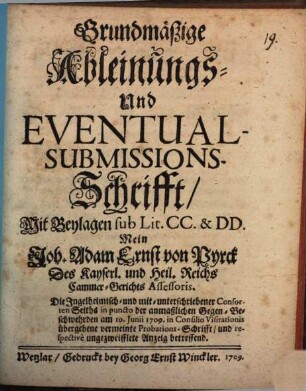 19.
Grundmäßige
Ableinungs-
Und
EVENTUAL-
SUBMISSIONS-
Schrifft/
Mit Beylagen sub Lit. CC. & DD.
Mein
Joh. Adam Ernst von Pyrck
Des Kayserl. und Heil. Reichs
Cammer-Gerichts Assessoris.
Die Ingelheimisch- und mit-unterschriebener Consor-
ten Seiths in puncto der anmaßlichen Gegen-Be-
schwehrden am 10. Junii 1709. in Consilio Visitationis
übergebene vermeinte Probations-Schrifft/ und re-
spectivè ungezweiffelte Anzeig betreffend.
Wetzlar/ Gedruckt bey Georg Ernst Winckler. 1709.